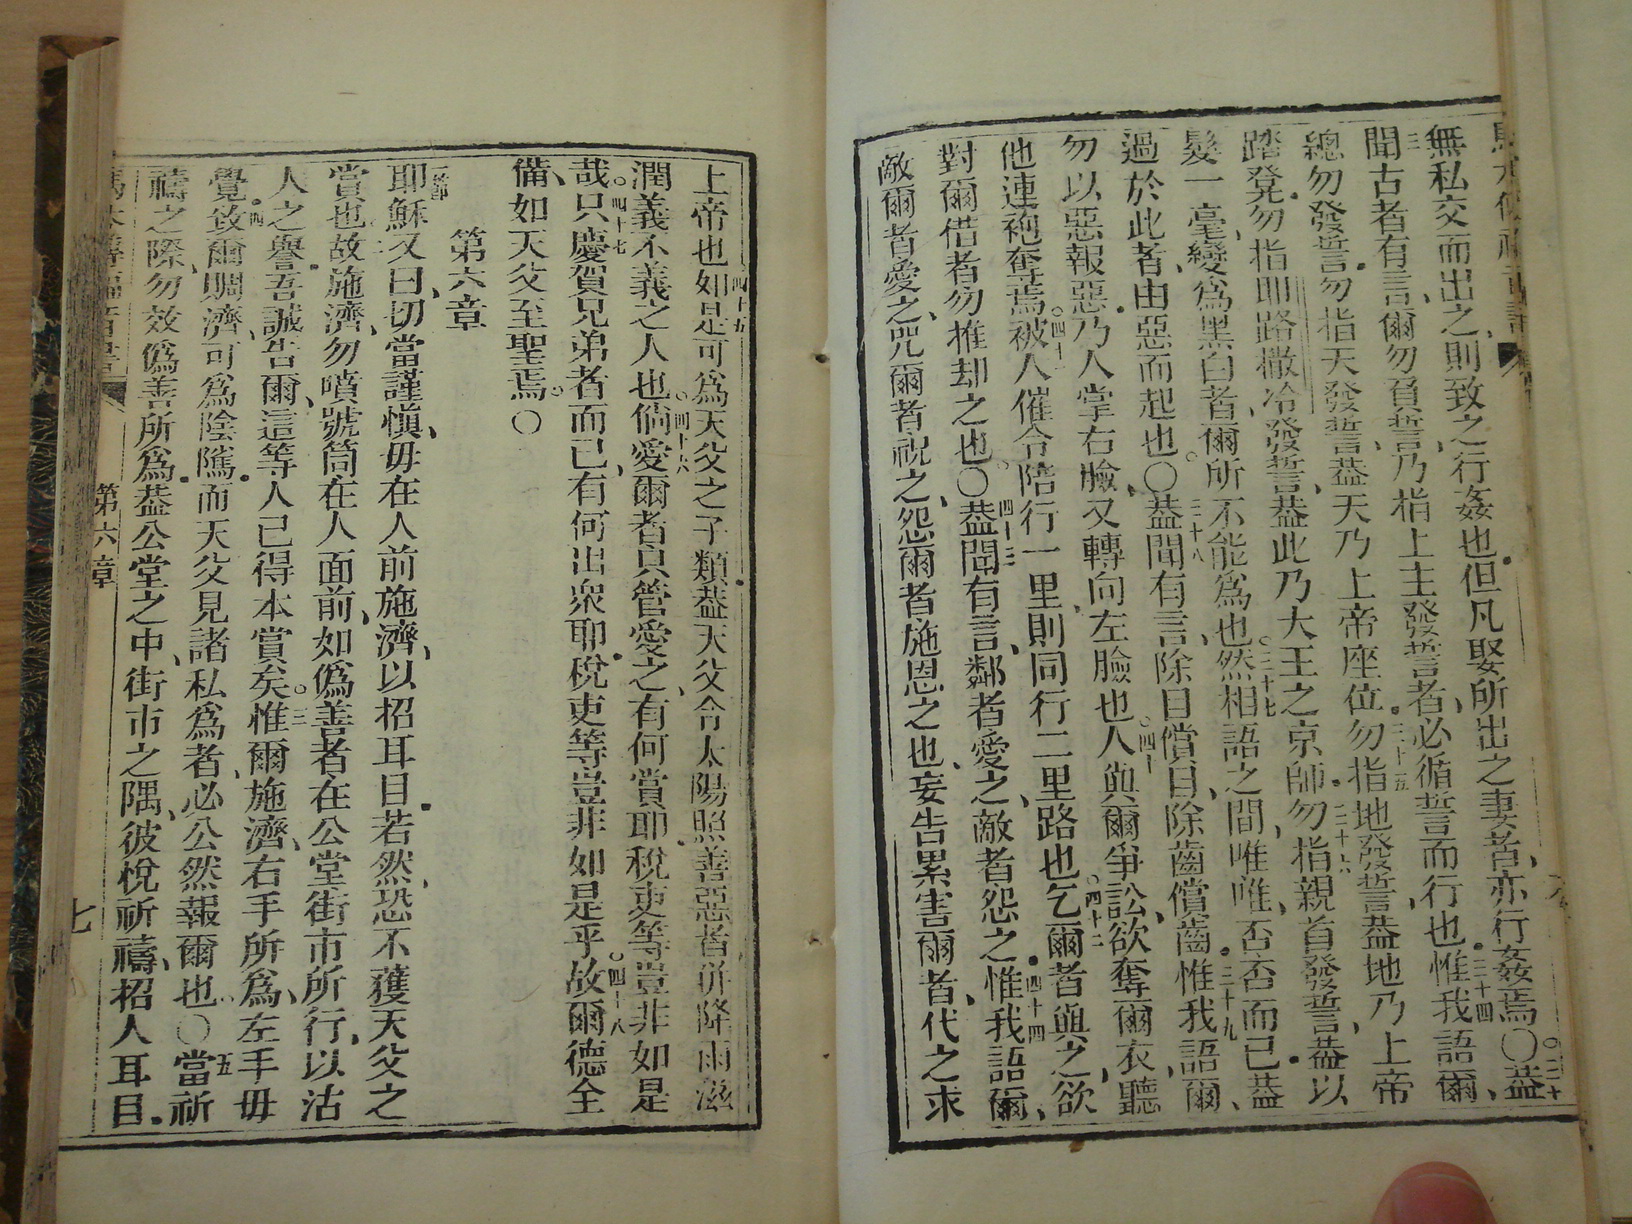 無私交而出之、則致之行姦也但凡娶所出之妻者、亦行姦焉〇葢
聞古者有言、爾勿負誓、乃指上主發誓者、必循誓而行也惟我語爾、
總勿發誓勿指天發誓葢天乃上帝座位勿指地發誓葢地乃上帝
踏凳勿指耶路撒冷發誓葢此乃大王之京師勿指親首發誓葢以
髮一毫變爲黑白者爾所不能爲也然相語之間唯唯否否而已葢
過於此者由惡而起也〇葢聞有言除目償目除齒償齒惟我語爾、
勿以惡報惡乃人掌右臉又轉向左臉也人與爾爭訟欲奪爾衣聽
他連袍奪焉被人催令陪行一里則同行二里路也乞爾者與之欲
對爾借者勿推却之也〇葢聞有言鄰者愛之敵者怨之惟我語爾、
敵爾者愛之咒爾者祝之怨爾者施恩之也妄告累害爾者代之求
上帝也如是可爲天父之子類葢天父令太陽照善惡者併降雨滋
潤義不義之人也倘愛爾者只管愛之有何賞耶稅吏等豈非如是
哉只慶賀兄弟者而已有何出衆耶稅吏等豈非如是乎故爾德全
備、如天父至聖焉〇
第六章
耶穌又曰切當謹愼毋在人前施濟以招耳目若然恐不獲天父之
賞也故施濟勿噴號筒在人面前如僞善者在公堂街市所行以沽
人之譽吾誠告爾這等人已得本賞矣惟爾施濟右手所爲左手毋
覺致爾賙濟可爲陰隲而天父見諸私爲者必公然報爾也〇當祈
禱之際勿效僞善所爲葢公堂之中街市之隅彼悅祈禱招人耳目
第六章
七